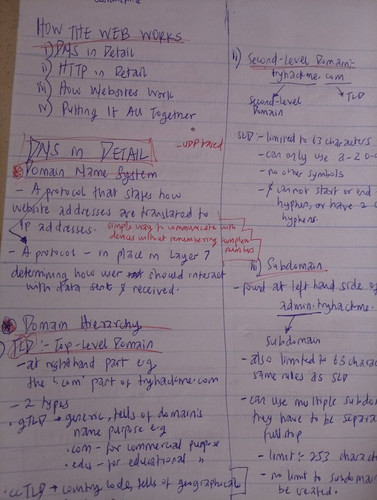 HOW THE WEB WORKS
i) DNS in Detail
ii) HTTP in Detail
iii) How Websites Work
iv) Putting It All Together
DNS in DETAIL
- UDP based
Domain Name System
- A protocol that states how
website addresses are translated to
ip addresses.
simple way to communicate with
devices without remembering complex
numbers
- A protocol - in place in Layer 7
determining how user should interact
with data sent & received.
Domain Hierarchy
TLD :- Top-level Domain
- at right hand part e.g
the "com" part of tryhackme.com
- 2 types
gTLD → generic, tells of domain's
name purpose e.g
.com - for commercial purpose
.edu - for educational "
ccTLD → country code, tells of geographical
ii) Second-level Domain:-
tryhackme.com
Second-level
Domain
TLD
SLD :- limited to 63 characters
- can only use a-z 0-
- no other symbols
- cannot start or end
hyphen, or have 2
hyphens.
iii) Subdomain
- found at left hand side of
admin.tryhackme.
Subdomain
- also limited to 63 charac
same rules as SLD
- can use multiple subdom
they have to be separa
fullstop
- limit :- 253 charact
- no limit to subdomain
be created.